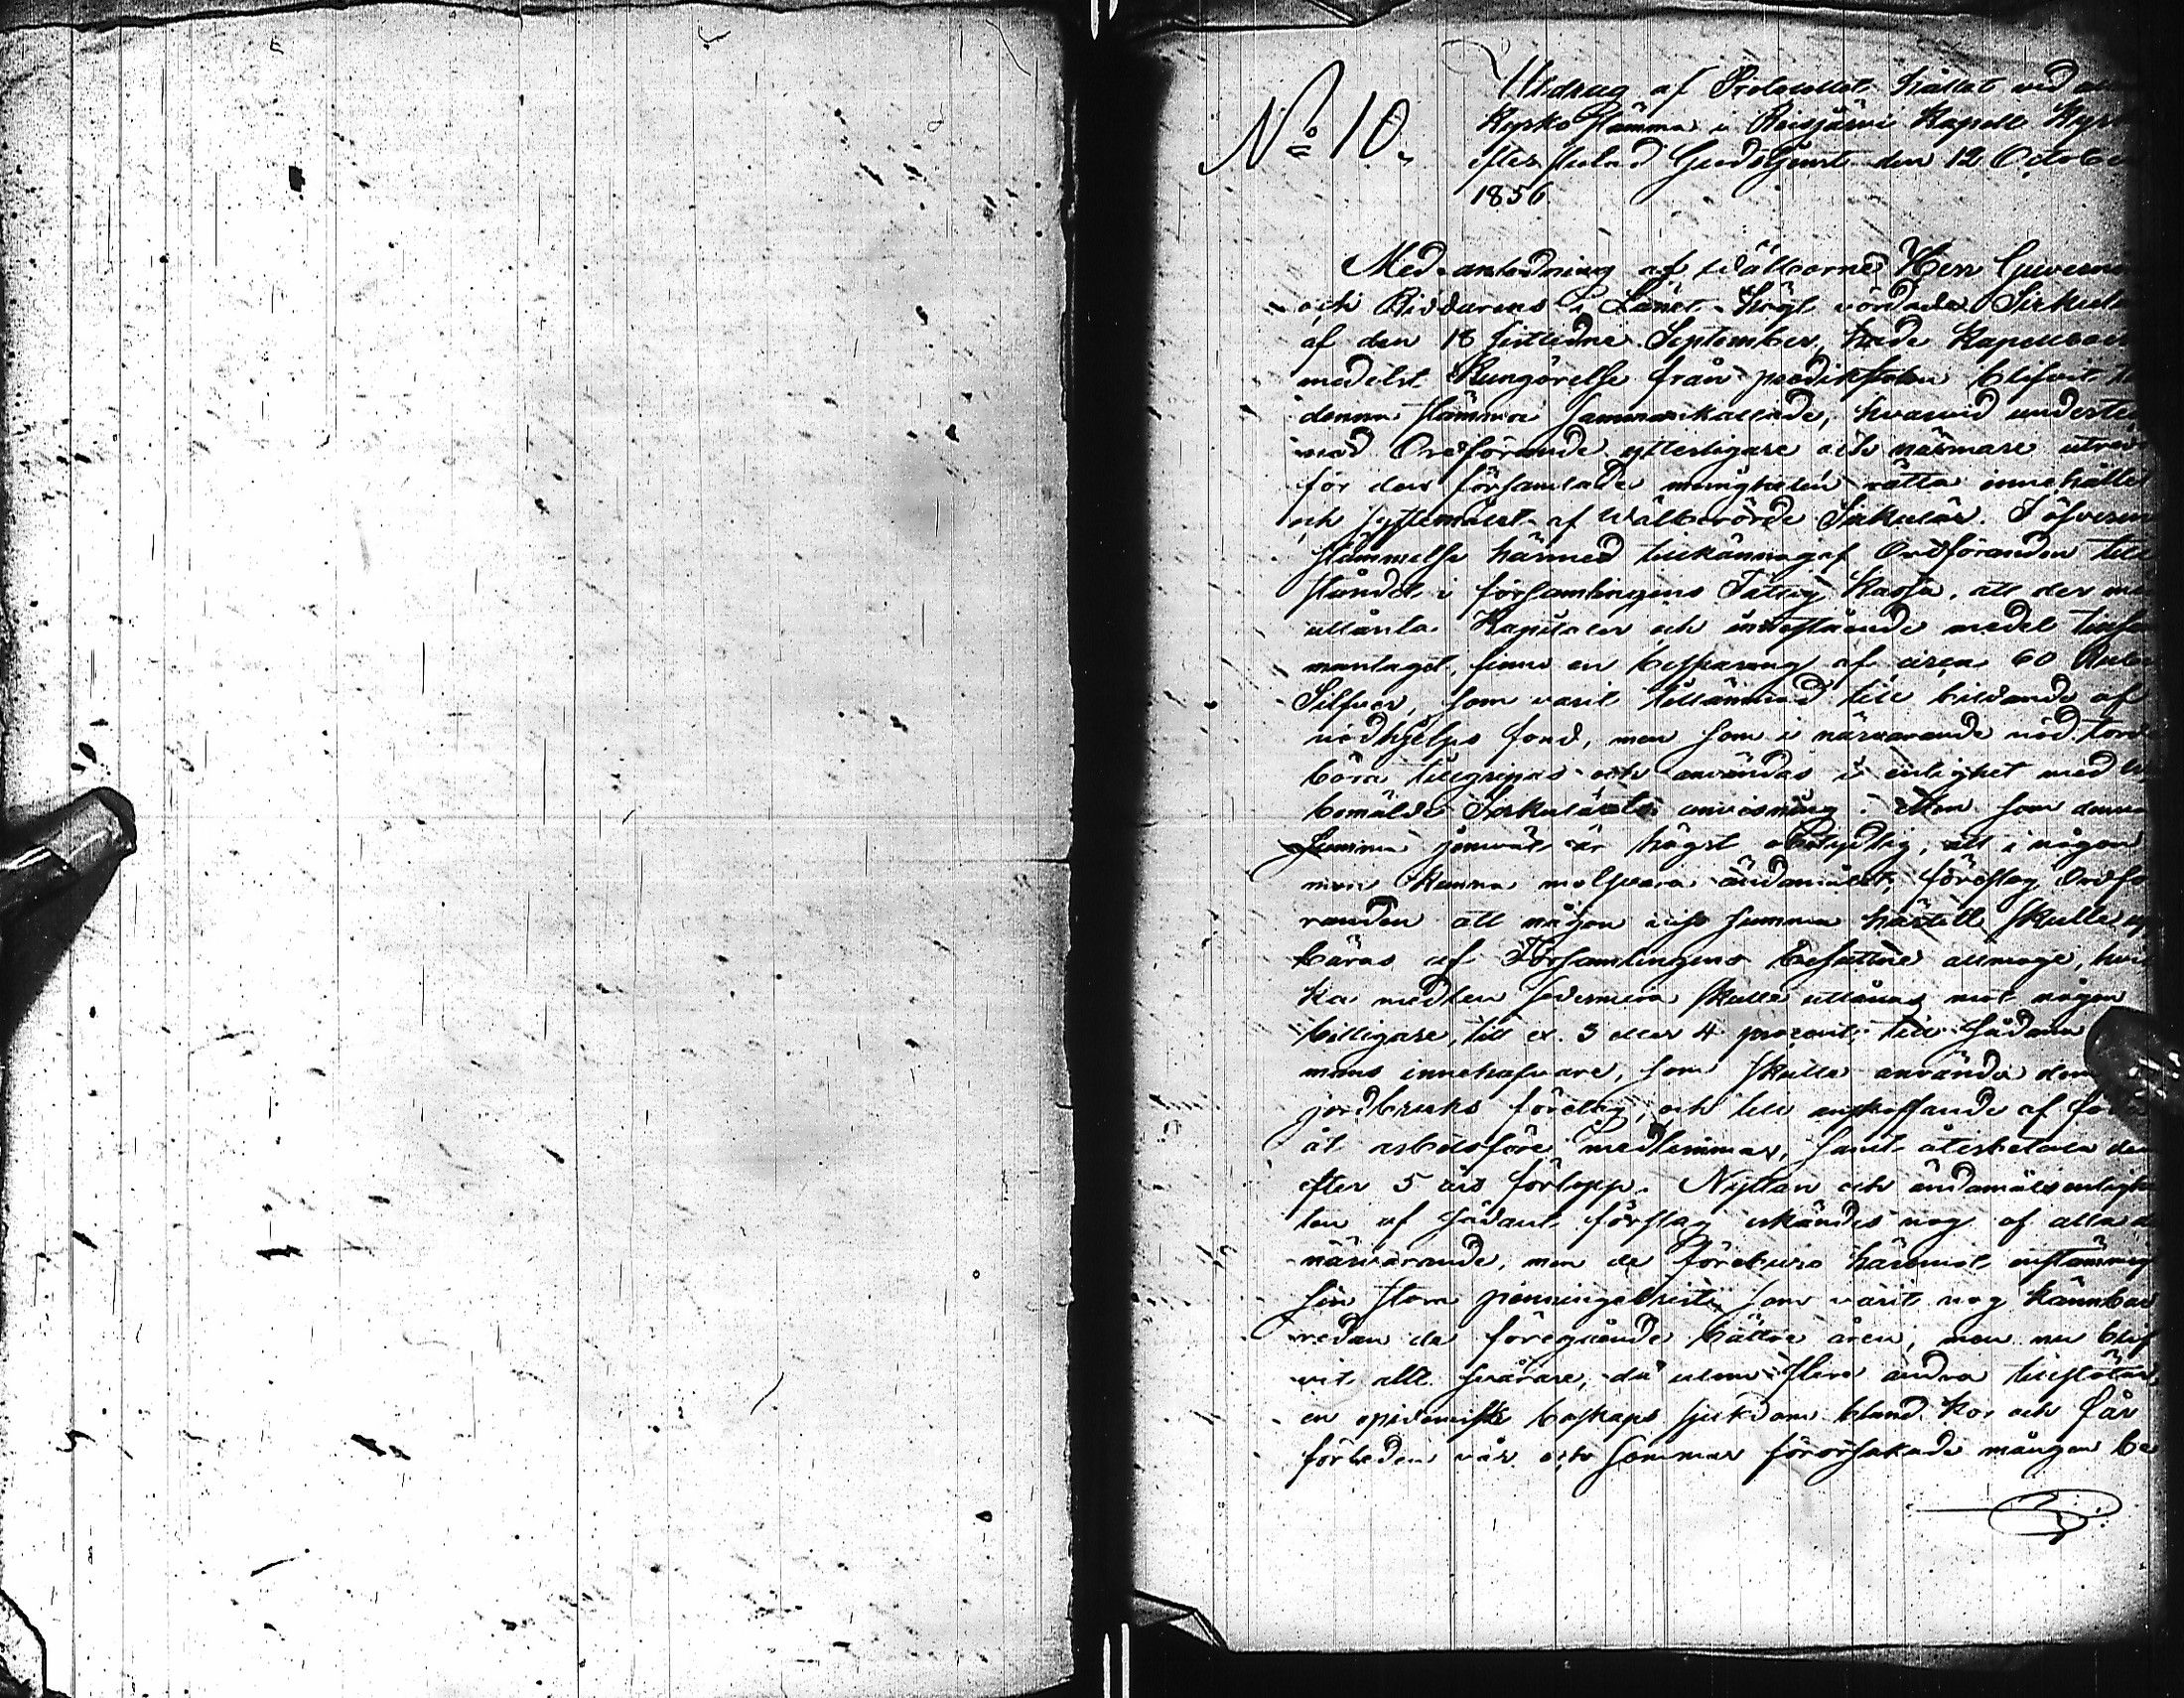 No 10.
Utdrag af Protocollet hållet vid
Kyrko stämma i Reisjärvi Kapell Kyr
efter slutad Gudstjenst den 12 Octobe
1856
Med anledning af Wälborne Herr Guverne
och Riddarens i Länet högt vördade Sirkul
af den 18 sistledne September, hade Kapellboe
medelst Kungörelse från predikstolen blifvit
denna stämma sammankallade, hvarvid underte
nad Ordförande ytterligare och närmare utred
för den församlade menigheten rätta innehålle
och syftemålet af Wälberörde Sirkulär. I öfveren
stämmelse härmed tillkännagaf Ordföranden till
ståndet i församlingens Fattig Kassa, att der
utlånta Kapitaler och innestående medel tillsa
mantaget, finns en besparing af circa 60 Rube
Silfver, som varit tillämnad till bildande af
nödhjelps fond, men som i närvarande nöd tord
böra tillgripas och användas i enlighet med
bemälde Sirkulärets anvisning. Men som denna
summa jemväl är högst obetydlig, att i någon
mon kunna motsvara ändamålet, föreslog Ordfö
randen att någon viss summa härtill skulle up
bäras af Församlingens besuttne allmoge, hvil
ka medlen sedermera skulle utlånas mot någon
billigare, till ex. 3 eller 4 procent, till sådana
mans innehafvare, som skulle använda dem
jordbruks företag, och till anskaffande af föda
åt arbetsföre medlemmar, samt återbetala dem
efter 5 års förlopp. Nyttan och ändamålsenlighe
ten af sådant förslag erkändes nog af alla
närvarande, men de förebure häremot enstämmig
sin stora penningebrist, som varit nog kännbar
redan de föregående bättre åren, men nu blif
vit allt svårare, då utom flere andra tillstötar,
en epidemisk boskaps sjukdom bland kor och får
förleden vår och sommar förorsakade mången be